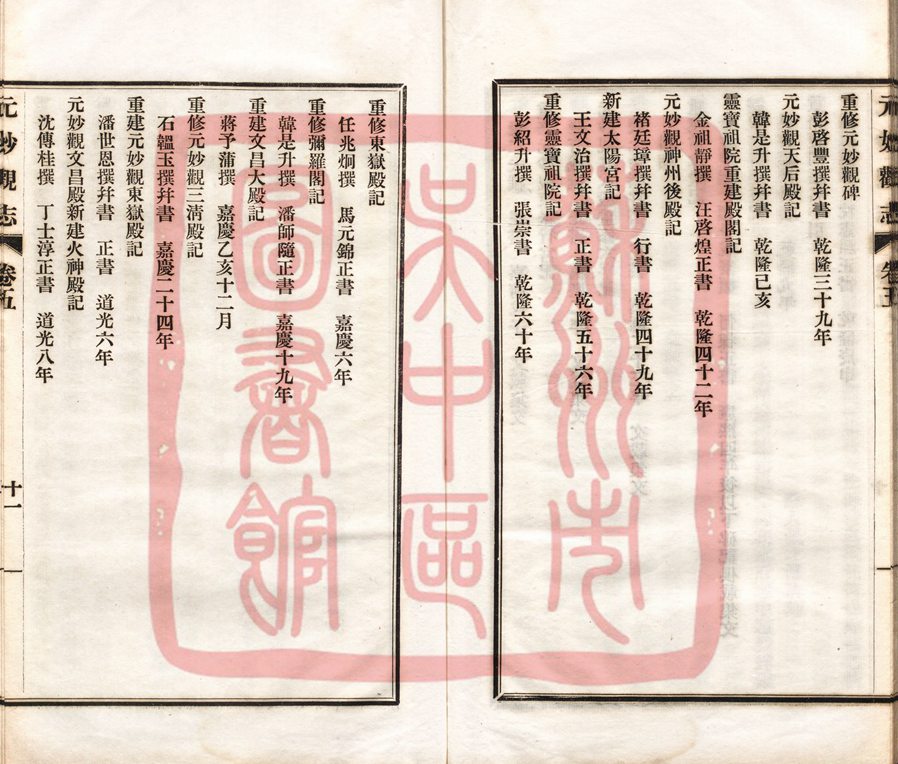 重修元妙觀碑
彭啓豐撰幷書　乾隆三十九年
元妙觀天后殿記
韓是升撰幷書　乾隆己亥
靈寶祖院重建殿閣記
金祖靜撰　汪啓煌正書　乾隆四十二年
元妙觀神州後殿記
褚廷璋撰幷書　行書　乾隆四十九年
新建太陽宮記
王文治撰幷書　正書　乾隆五十六年
重修靈寶祖院記
彭紹升撰　張崇書　乾隆六十年
重修東嶽殿記
任兆炯撰　馬元錦正書　嘉慶六年
重修彌羅閣記
韓是升撰　潘師隨正書　嘉慶十九年
重建文昌大殿記
蔣予蒲撰　嘉慶乙亥十二月
重修元妙觀三淸殿記
石韞玉撰幷書　嘉慶二十四年
重建元妙觀東嶽殿記
潘世恩撰幷書　正書　道光六年
元妙觀文昌殿新建火神殿記
沈傳桂撰　丁士淳正書　道光八年
元妙觀志　卷五　十一
蘇州市
吳中區
圖書館